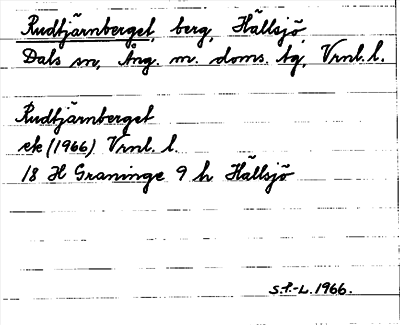 Rudtjärnberget, berg, Hällsjö,
Dals sn, Ång. m. doms. tg, Vrnl. l.
Rudtjärnberget
ek (1966) Vrnl. l.
18 H Graninge 9 h Hällsjö
S.P.-L. 1966.